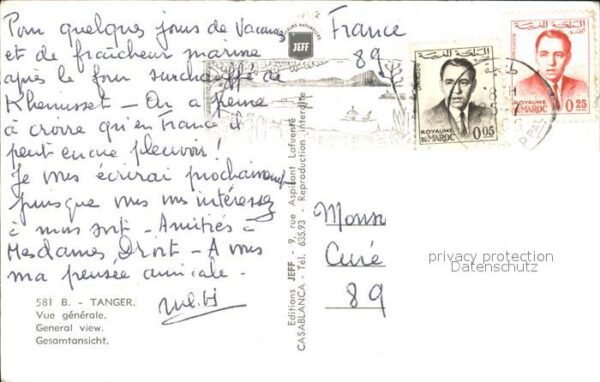 Pour quelques jours de Vacances
et de fraîcheur marine
après le four surchauffé de
Khemisset - On a peine
à croire qu'en France il
peut encore pleuvoir !
Je vous écrirai prochainement
puisque vous vous intéressez
à mon sort - Amitiés à
Mesdames Droit - A vous
ma pensée amicale -
581 B. - TANGER.
Vue générale.
General view.
Gesamtansicht.
JEFF
Editions JEFF - 9, rue Aspirant Lafuente
CASABLANCA - Tél. 635.93 - Reproduction interdite
France
89
المملكة المغربية
POSTES
ROYAUME
DU MAROC
0,05
المملكة المغربية
POSTES
ROYAUME
DU MAROC
0,25
Monsr
Curé
89
privacy protection
Datenschutz